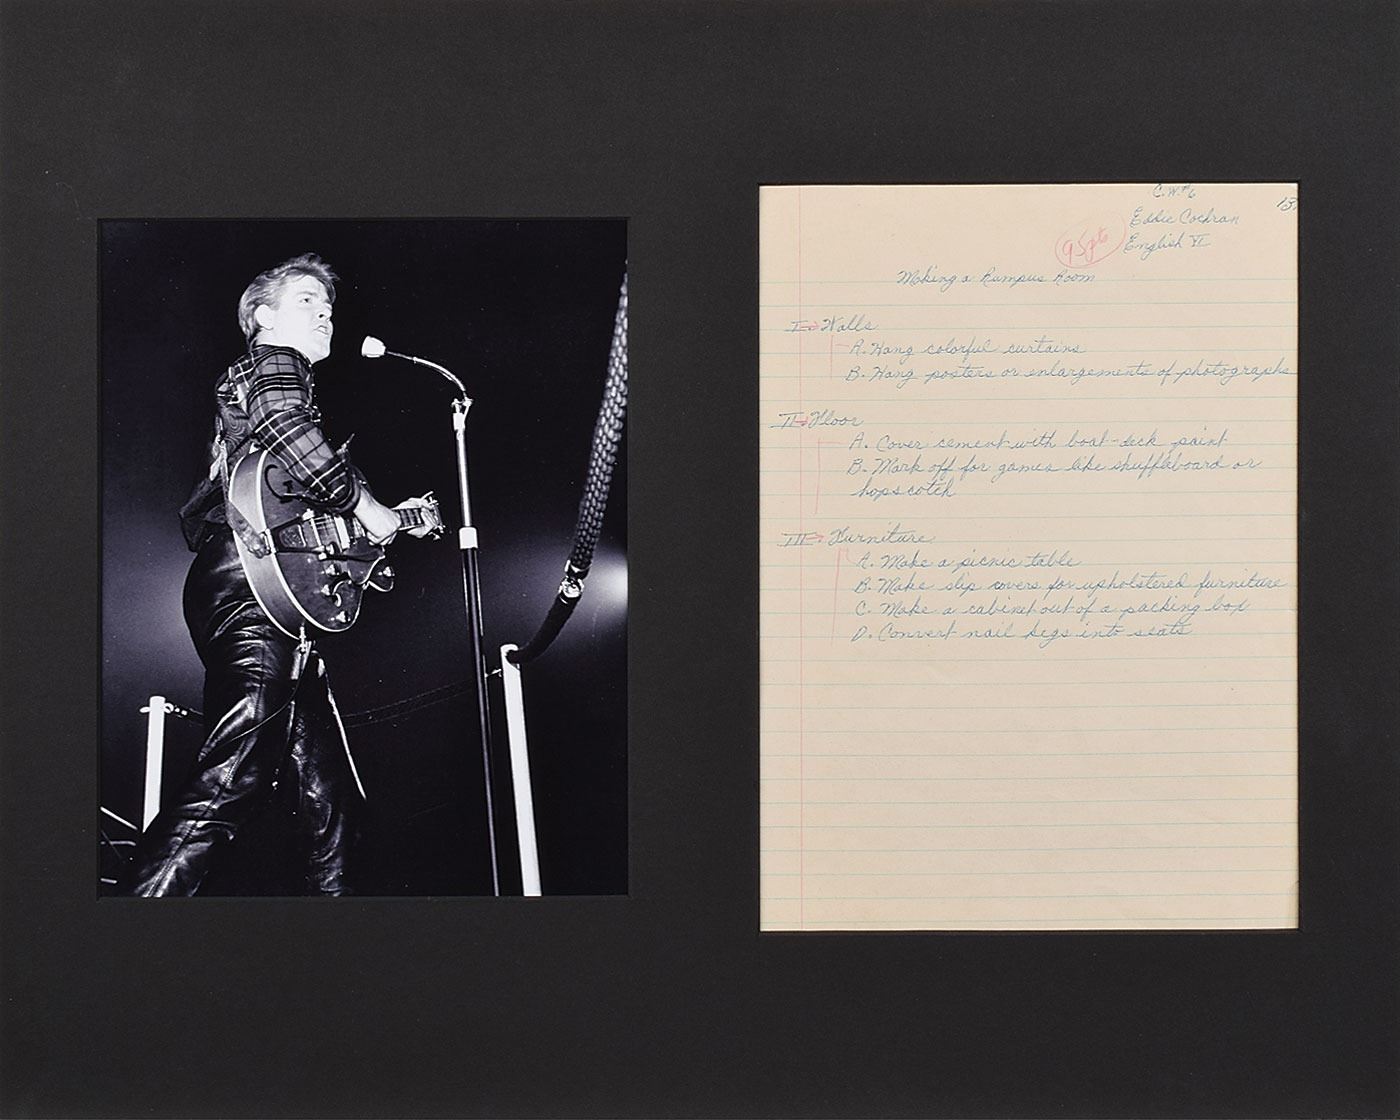 C.W.#6
13
Eddie Cochran
95pts
English VI
Making a Rumpus Room
I. Walls
A. Hang colorful curtains
B. Hang posters or enlargements of photographs
II. Floor
A. Cover cement with boat-deck paint
B. Mark off for games like shuffleboard or
hopscotch
III. Furniture
A. Make a picnic table
B. Make slip covers for upholstered furniture
C. Make a cabinet out of a packing box
D. Convert nail kegs into seats